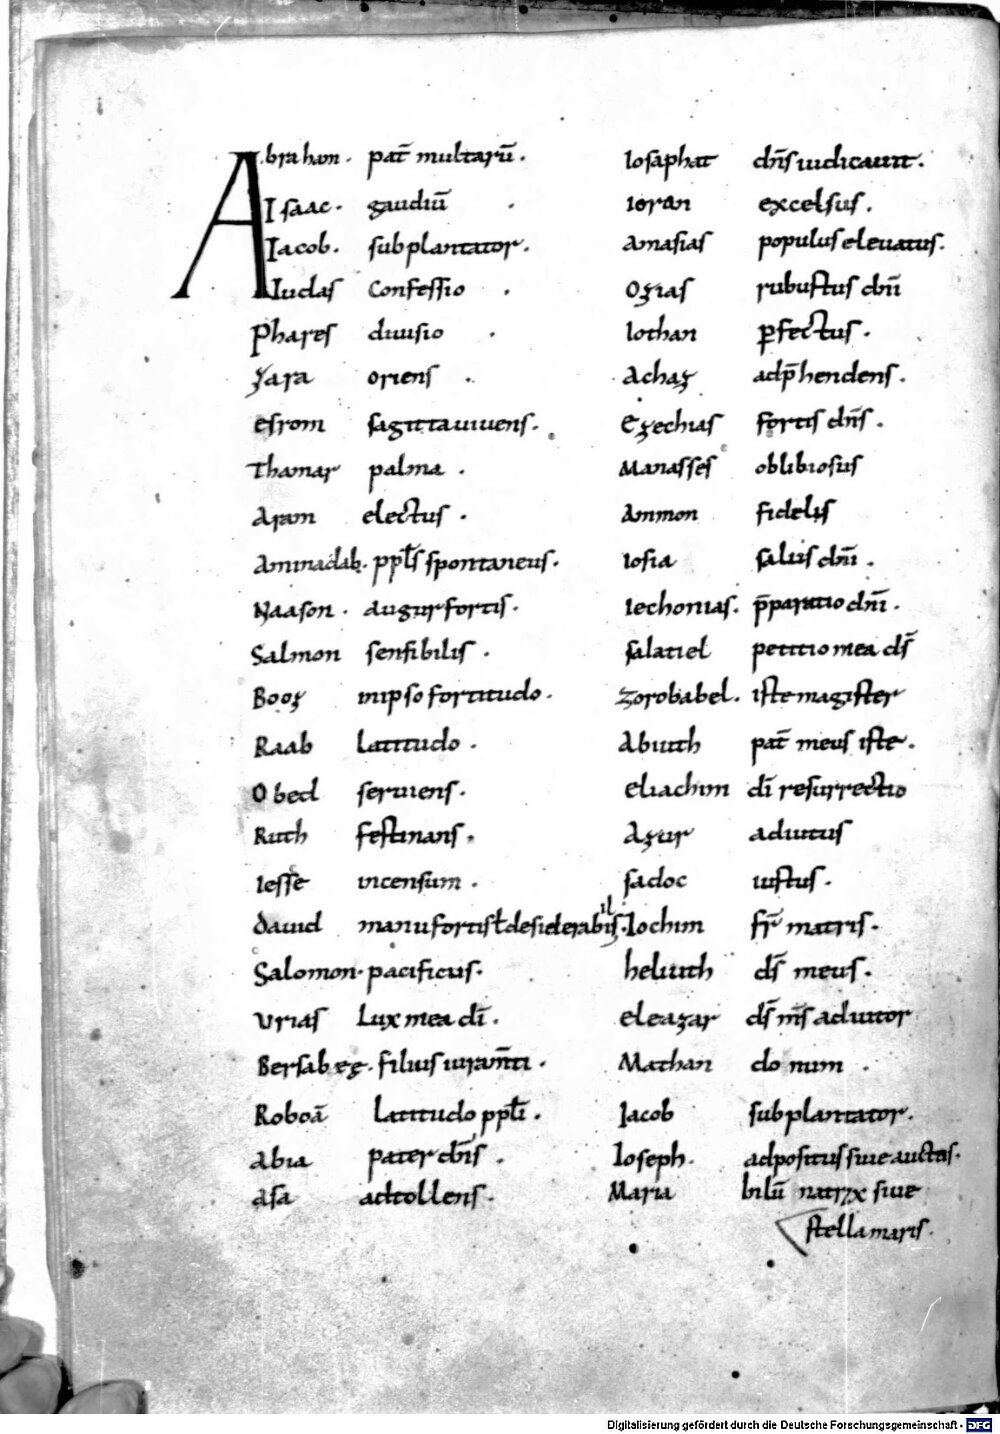 Abraham · pat̄ multarū ·
Isaac · gaudiū ·
Iacob · subplantator ·
Iudas Confessio ·
Phares diuisio ·
Zara oriens ·
esrom sagitta uiuens ·
Thamar palma ·
Aram electus ·
Aminadab · pplꝭ spontaneus ·
Naason · augur fortis ·
Salmon sensibilis ·
Booz inipso fortitudo ·
Raab Latitudo ·
Obed seruiens ·
Ruth festinans ·
Iesse incensum ·
dauid manu fortis ł desiderabilis ·
Salomon · pacificus ·
Urias Lux mea dī ·
Bersabeę · filius iuram̄ti ·
Roboā Latitudo pplī ·
Abia pater dn̄s ·
Asa adtollens ·
Iosaphat dn̄s iudicauit ·
Ioran excelsus ·
Amasias populus eleuatus ·
Ozias rubustus dn̄i
Iothan ꝑfectus ·
Achaz adp̄hendens ·
Ezechias fortis dn̄s ·
Manasses oblibiosus
Ammon fidelis
Iosia salus dn̄i ·
Iechonias · p̄paratio dn̄i ·
salatiel petitio mea ds̄
Zorobabel · iste magister
Abiuth pat̄ meus iste ·
eliachim dī resurrectio
Azur adiutus
sadoc iustus ·
Iochim fr̄ matris ·
heliuth ds̄ meus ·
eleazar ds̄ ms̄ adiutor
Mathan donum ·
Jacob subplantator ·
Ioseph · adpositus siue auctus ·
Maria siue
stella maris ·
Digitalisierung gefördert durch die Deutsche Forschungsgemeinschaft - DFG